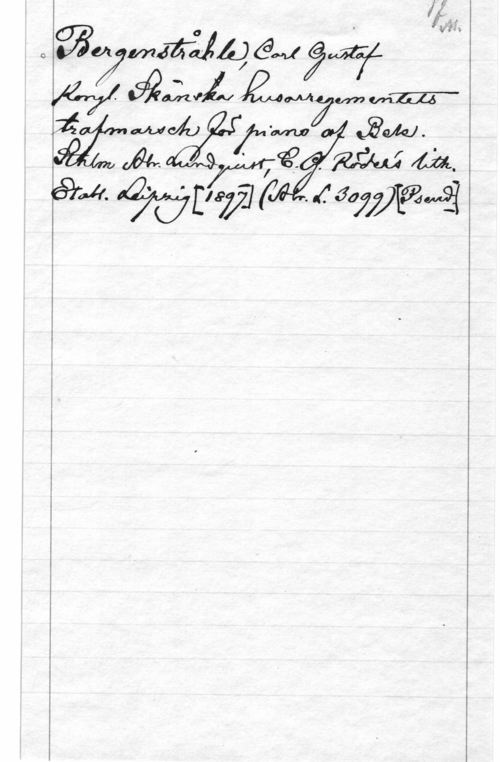 Bergenstråhle, Carl Gustaf
Kongl. Skånska husarregementets
trafmarsch för piano af Bele.
Sthlm Abr. Lundquist, C. G. Röder's lith.
Etabl. Leipzig [1897] (Abr. L. 3099) [Pseud.]